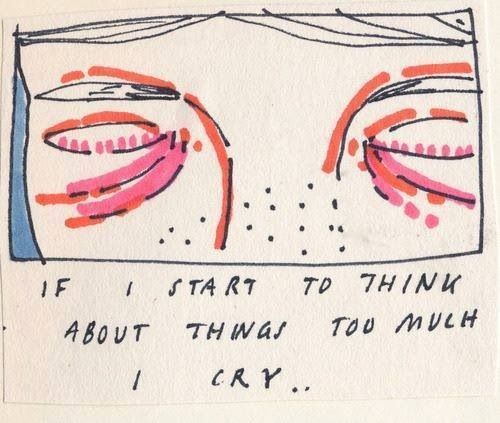 IF I START TO THINK
ABOUT THINGS TOO MUCH
I CRY..